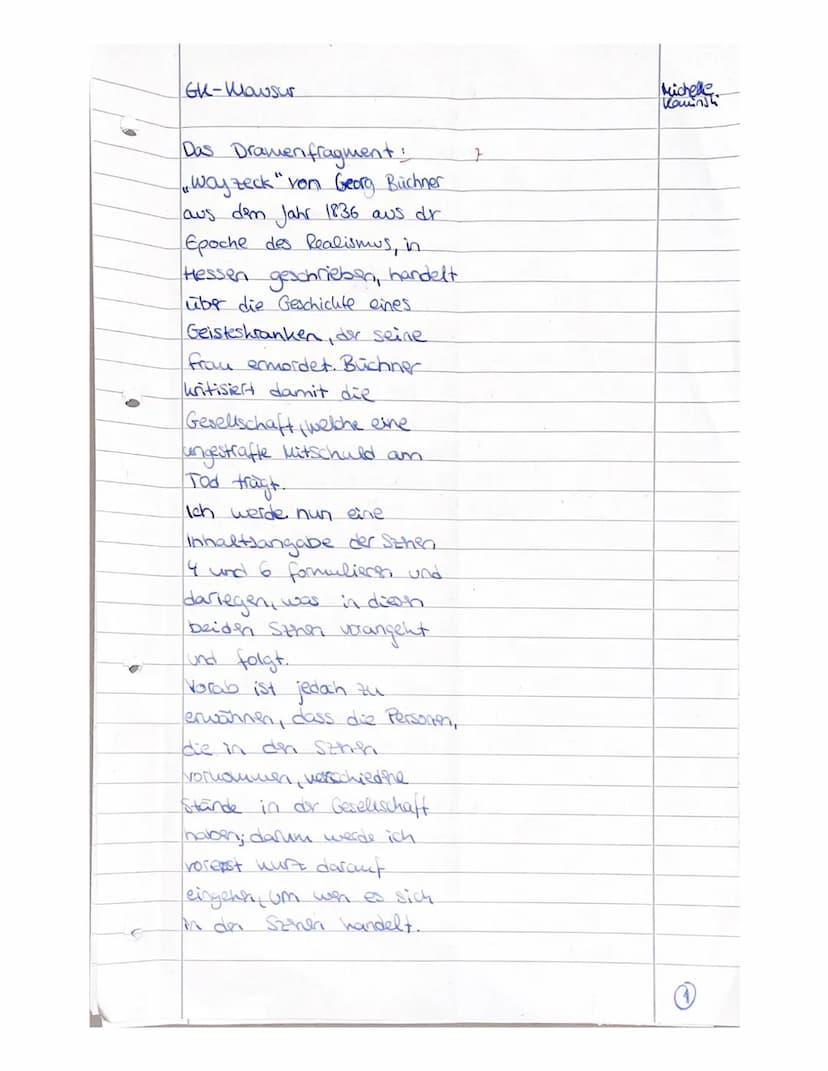 GK-Klausur
Michelle
Kaminski
Das Dramenfragment:
„Woyzeck" von Georg Büchner
aus dem Jahr 1836 aus dr
Epoche des Realismus, in
Hessen geschrieben, handelt
über die Geschichte eines
Geisteskranken, der seine
Frau ermordet. Büchner
kritisiert damit die
Gesellschaft, welche eine
ungestrafte Mitschuld am
Tod trägt.
Ich werde nun eine
Inhaltsangabe der Szenen
4 und 6 formulieren und
darlegen, was in diesen
beiden Szenen vorangeht
und folgt.
Vorab ist jedoch zu
erwähnen, dass die Personen,
die in den Szenen
vorkommen, verschiedene
Stände in der Gesellschaft
haben; darum werde ich
vorerst kurz darauf
eingehen, um wen es sich
in den Szenen handelt.
1